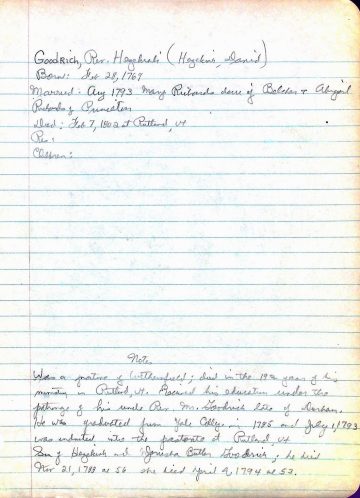 Goodrich, Rev. Hezekiah (Hezekiah, David)
Born: Feb 28, 1769
Married: Aug 1793 Mary Richards daus of Belcher & Abigail
Richards of Princeton
Died; Feb 7, 1802 at Rutland, Vt
Res:
Children:
Notes
Was a native of Wethersfield; died in the 19th year of his
ministry in Rutland, Vt. Received his education under the
patronage of his uncle Rev. Mr. Goodrich late of Durham.
He was graduated from Yale College in 1785 and July 1, 1793
was inducted into the pastorate at Rutland Vt
Son of Hezekiah and Honora Butler Goodrich; he died
Nov 21, 1783 ae 56 she died April 9, 1794 ae 53.